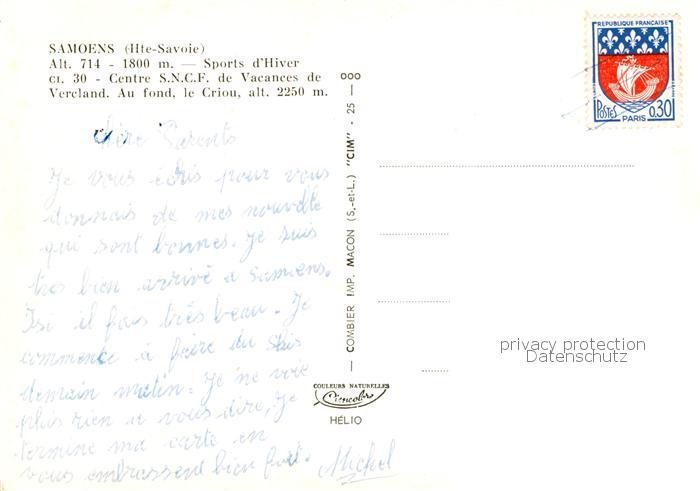 SAMOENS (Hte-Savoie)
Alt. 714 - 1800 m. — Sports d'Hiver
CI. 30 - Centre S.N.C.F. de Vacances de
Vercland. Au fond, le Criou, alt. 2250 m.
chère Parents
Je vous écris pour vous
donnais de mes nouvelle
qui sont bonnes. Je suis
tres bien arrivé a Samoens.
Isi il fais très beau. Je
commence à faire du skis
demain matin. Je ne voie
plus rien a vous dire, Je
termine ma carte en
vous embrassent bien fort. Michel
COMBIER IMP. MACON (S.-et-L.) "CIM" - 25 — 000
COULEURS NATURELLES
Cimcolor
HÉLIO
REPUBLIQUE FRANÇAISE
POSTES 0,30
PARIS
privacy protection
Datenschutz